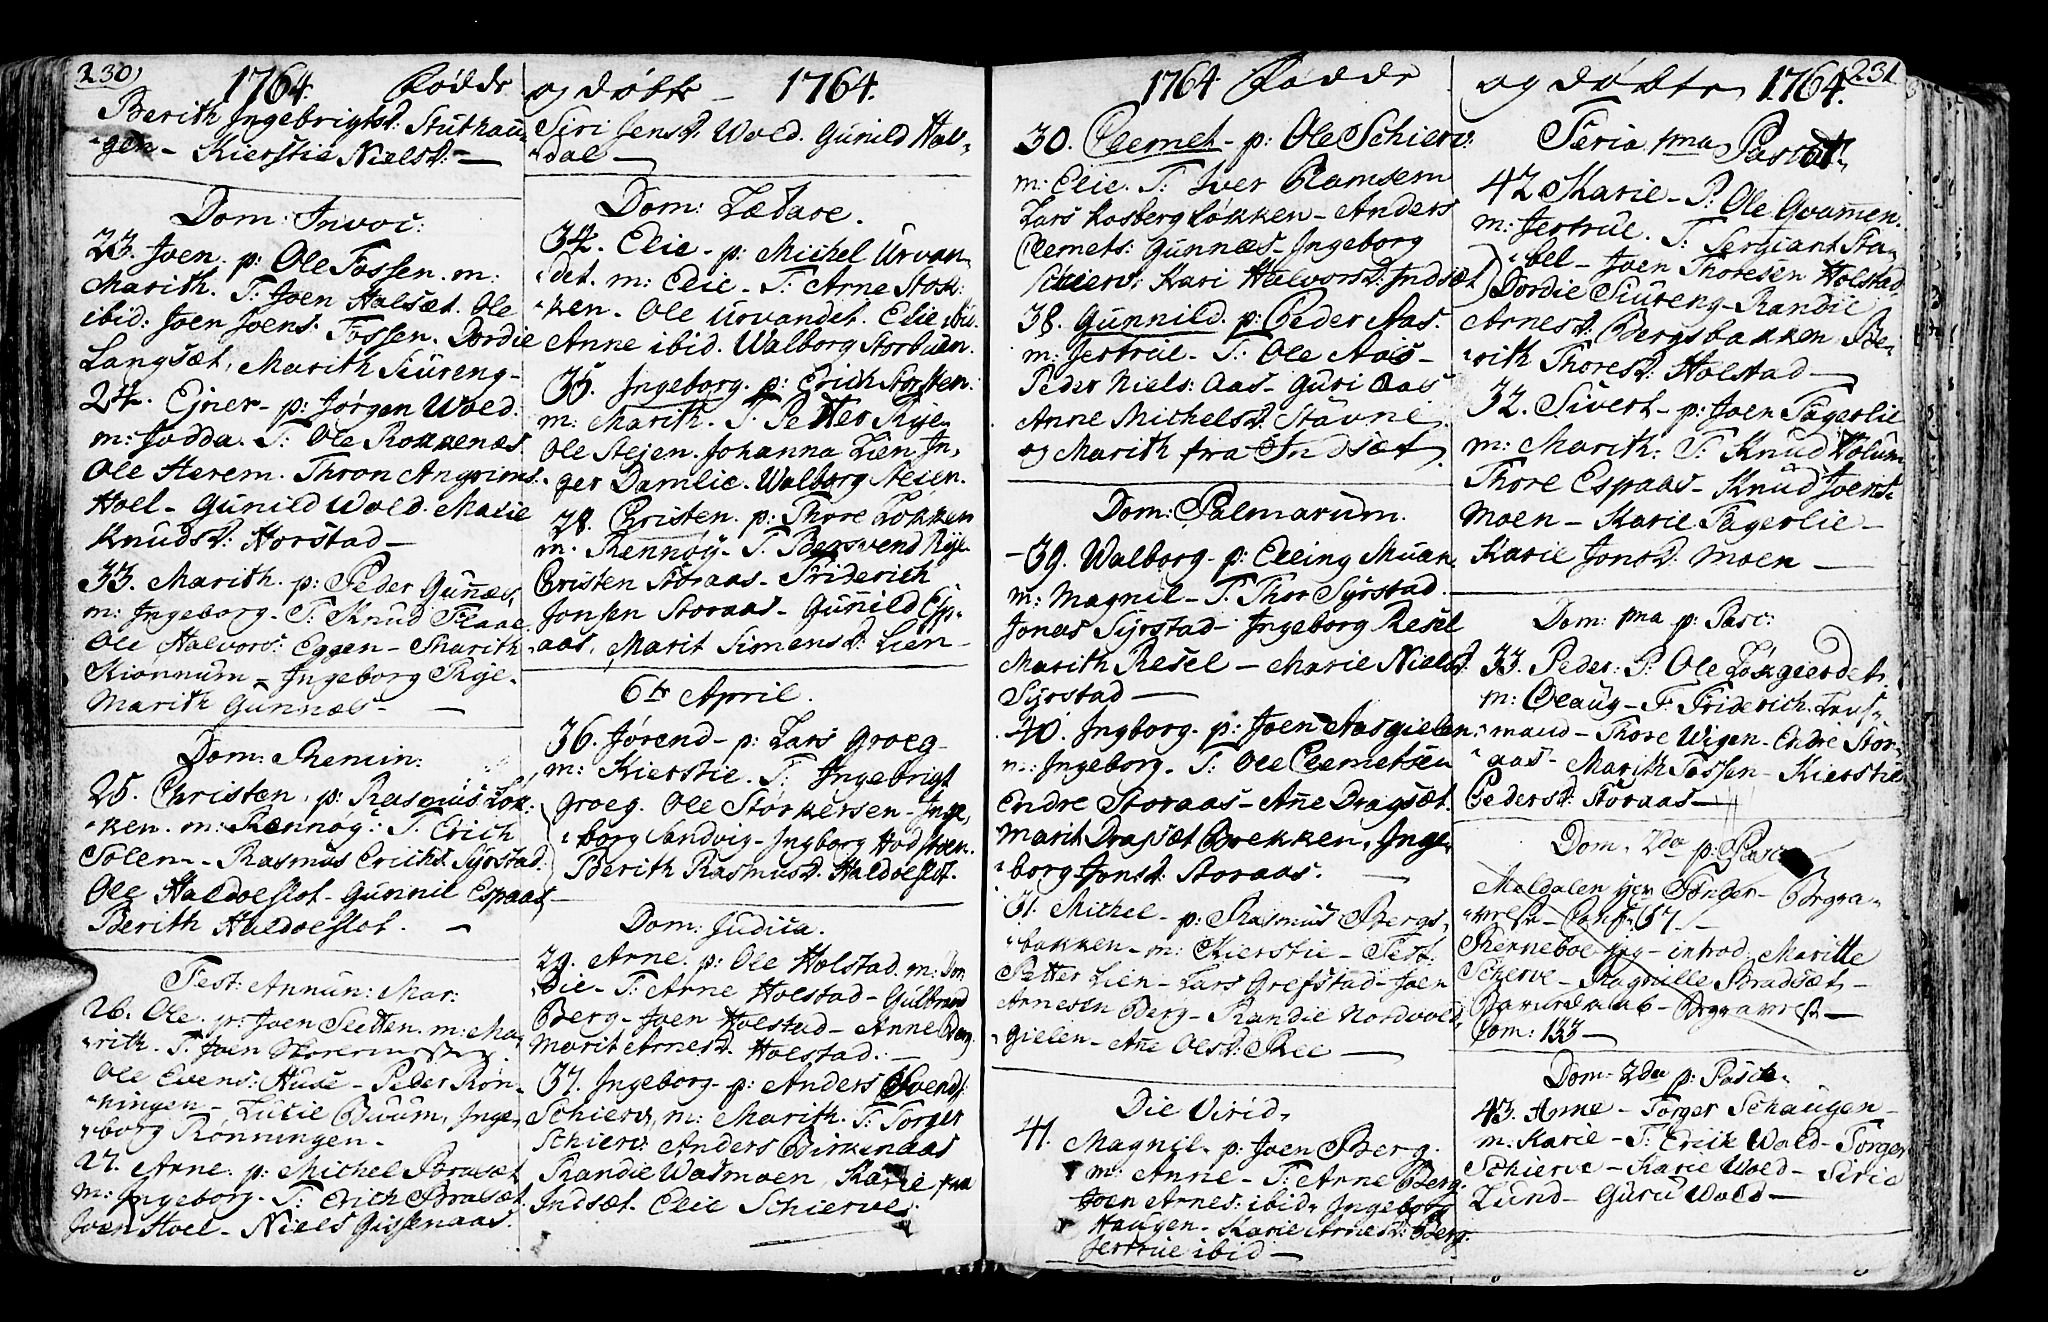 230,
1764. Fødde
Berith Ingebrigtsd: Stuthau-
gen - Kierstie Nielsd: -
Dom: Invoc:
23. Joen. p: Ole Fossen. m:
Marith. T: Joen Halsæt. Ole
ibid: Joen Joens: Fossen. Dordie
Langsæt, Marith Siureng -
24. Ejner - p: Jørgen Wold.
m: Jodda. T: Ole Rokkenæs
Ole Herem. Thron Angrims:
Hoel - Gunild Wold. Marie
Knudsd: Horstad -
33. Marith. p: Peder Guñæs,
m: Ingeborg - T: Knud Flaae
Ole Halvors: Eggen - Marith
Kionnum - Ingeborg Rye -
Marith Gunnæs -
Dom: Remin:
25. Christen, p: Rasmus Løk-
ken. m: Rennøg: T: Erich
Solem - Rasmus Erichs Syrstad.
Ole Haldoeslot - Gunnil Espaas
Berith Haldoeslot. -
Fest: Annun: Mar:
26. Ole. p: Joen Sletten. m: Ma-
rith. T: Joen
Ole Evens: Huse - Peder Røn-
ningen - Lucie Buum, Inge-
borg Rønningen -
27. Arne. p: Michel Bræsæt
m: Ingeborg - T: Erich Bræsæt
Joen Hoel - Niels Gissenaas.
og døbte - 1764.
Siri Jensd: Wold. Gunild Hal-
dal -
Dom: Lætare.
34. Elie - p: Michel Urvan-
det. m: Elie - T: Arne Stok-
ken - Ole Urvandet. Elie ibid.
Anne ibid. Walborg Storbuen.
35. Ingeborg. p: Erich Storsten:
m: Marith. T: Petter Rye -
Ole Steien. Johanna Lien In-
ger Damlie. Walborg Steien.
28. Christen. p: Thore Løkken
m. Rennøy - T. Bersvend Rye -
Christen Storaas - Friderich
Jonsen Storaas - Guñild Esp-
aas, Marit Simensd: Lien -
6te April.
36. Jørend - p: Lars Groeg -
m: Kierstie. T: Ingebrigt
Groeg. Ole Størkersen - Inge-
borg Sandvig - Ingborg Hofstoen.
Berith Rasmusd: Haldoeslot.
Dom: Judica.
29. Arne. p: Ole Holstad. m: Dor-
die - T: Arne Holstad - Gulbrand
Berg - Joen Holstad - Anne Berg
Marit Arnesd. Holstad. -
37. Ingeborg - p: Anders Svends:
Schierv, m: Marith. T: Torger
Schierv: Anders Birkenaas
Randie Wasmoen, Karie fra
Indsæt. Elie Schierve.
1764 Fødde
30. Clemet - p: Ole Schierv:
m: Elie. T: Iver Ramsem
Lars Løkken - Anders
Clemets: Gunnæs - Ingeborg
Schierv: Kari Halvorsd: Indsæt
38. Gunnild. p: Peder Aas.
m: Jertrue - T: Ole Aas -
Peder Niels: Aas - Guri Aas
Anne Michelsd: Stavne
og Marith fra Indsæt.
Dom: Palmarum.
- 39. Walborg - p: Elling Muan
m: Magnil - T. Thor Syrstad.
Jonas Syrstad - Ingeborg Resel
Marith Resel - Marie Nielsd:
Syrstad -
40. Ingborg - p: Joen Aasgielen,
m: Ingeborg - T: Ole Clemetsen
Endre Storaas - Añe Dragsæt.
Marit Dragsæt Brekken, Inge-
borg Jonsd: Storaas. -
31. Michel - p: Rasmus Bergs-
bakken - m: Kierstie - Test:
Petter Lien - Lars Grefstad - Joen
Arnesen Berg - Randie Nordvold
gielen - Añe Olsd: Ree -
Die Virid,
41. Magnil - p: Joen Berg.
m: Anne - T: Arne Berg.
Joen Arnes: ibid, Ingeborg
Haugen - Karie Arnesd: Berg.
Jertrue ibid -
og døbte 1764. 231
Feria 1ma Pascat.
42 Marie - P: Ole Gvamen.
m: Jertrue. T: Sergiant Sta-
bel - Joen Thoresen Holstad
Dordie Siureng - Randie
Arnesd: Bergsbakken, Be-
rith Thoresd: Holstad -
32. Sivert - p: Joen Fagerlie
m: Marith: T: Knud Holum
Thore Espaas - Knud Joens:
Moen - Karie Fagerlie -
Karie Jonsd: Moen -
Dom: 1ma p: Pasc:
33. Peder: P: Ole Løkgierdet,
m: Olaug - T: Friderich
mand - Thore Wigen - Endre Stor-
aas - Marith Fossen - Kierstie
Pedersd: Storaas -
Dom. 2da p: Pasc
Meldalen
Conf: 67 -
Renneboe - introd: Maritte
Schierve - Bradsæt -
Com: 133 -
Dom: 2da p: Pasch,
43. Anne - Torger Schaugen -
m: Karie - T: Erik Wold - Torger
Schierve - Karie Wold - Sirie
Lund - Guru Wold -